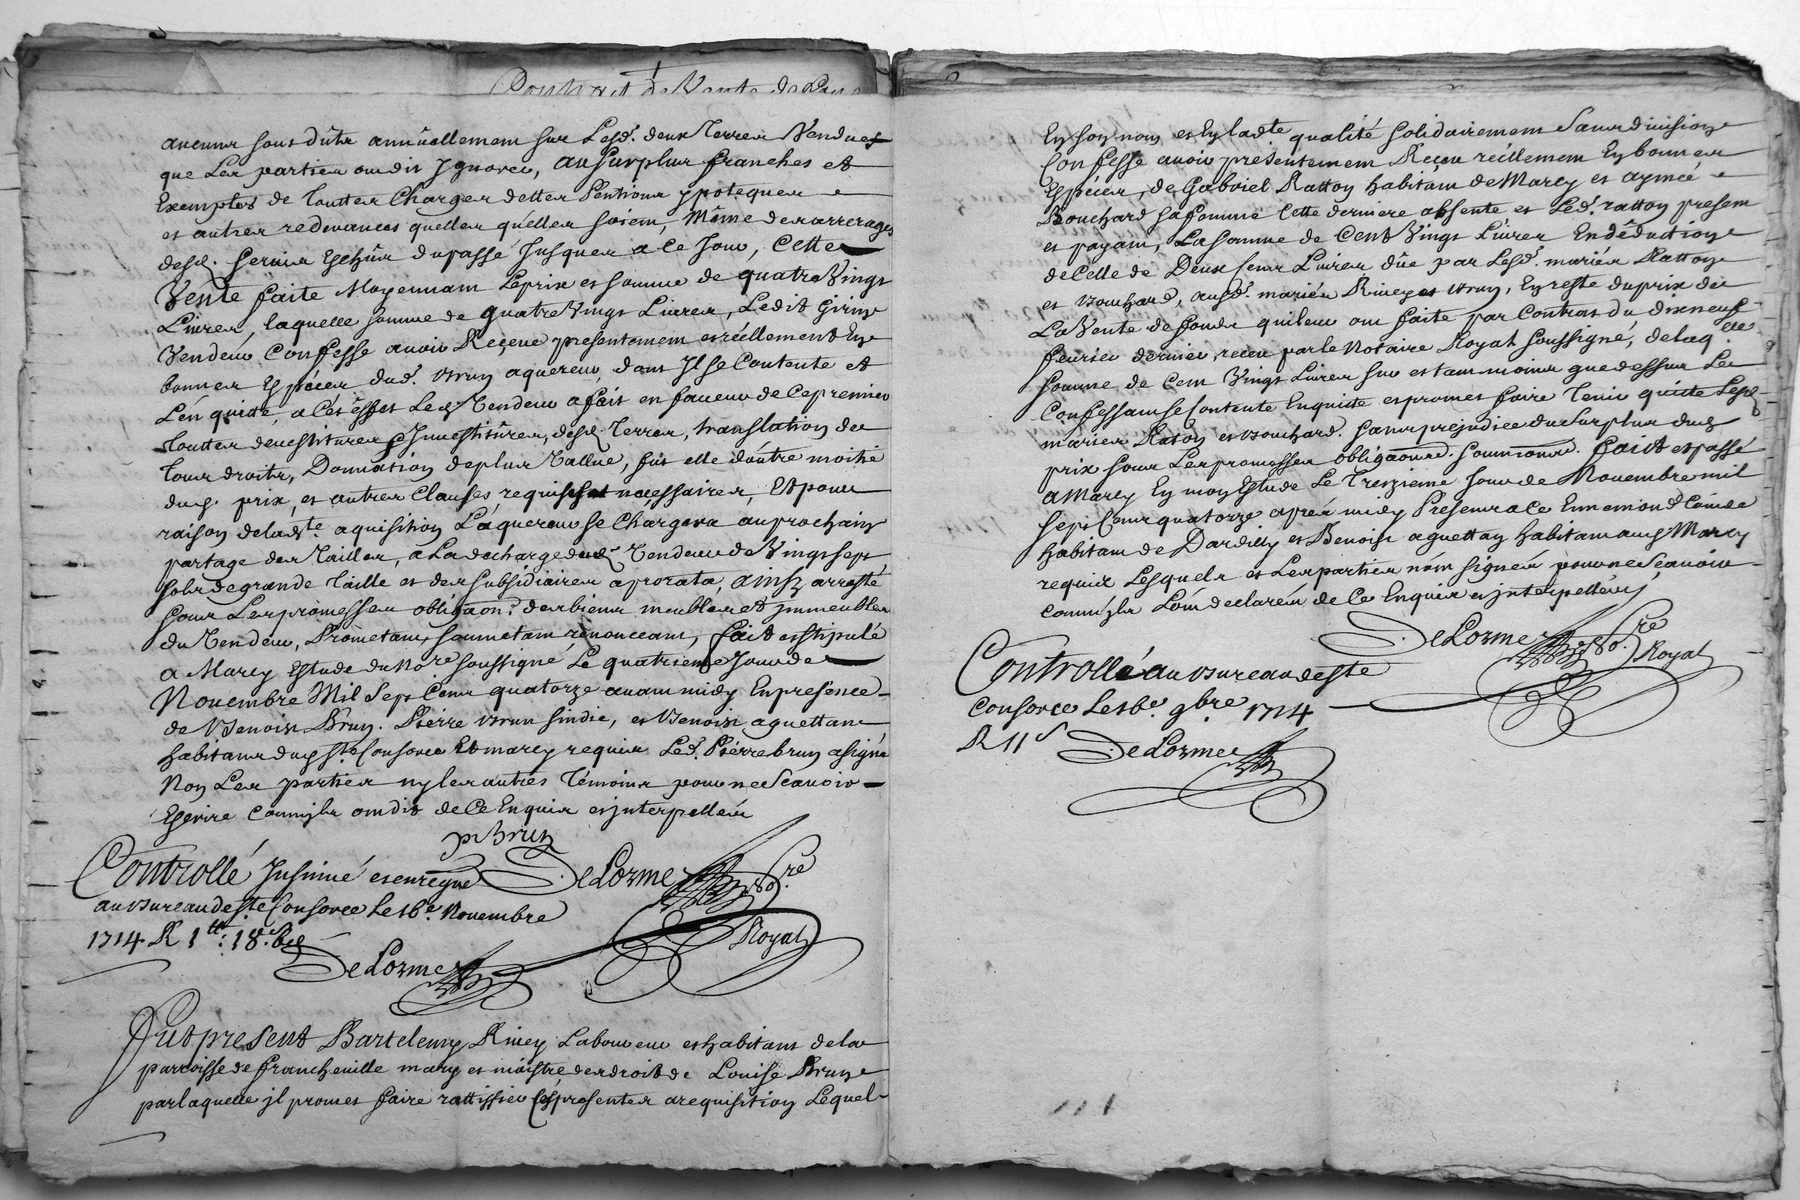 Contract de Vente de
aucuns sous dûts annüellement sur Lesd. deux terres Vendues
que Les parties ont dit Ignorer, au surplus franches et
Exemptes de touttes Charges dettes Pentions ypoteques
et autres redevances quelles qu'elles soient, Même des arrerages
desd. servis Escheûs du passé Jusques a Ce Jour, Cette
Vente faite Moyennant Leprix et somme de quatre Vingt
Livres, laquelle somme de quatre Vingt Livres, Ledit Girin
Vendeur Confesse avoir Reçeue presentement et réellement En
bonnes Espéces dud. Brun aquereur, dont Il se Contente et
L'en quitte, a Cét êffet Led. Vendeur a fait en faveur de Ce premier
touttes devestitures Investitûres, desd. terres, translation de
tous droits, Donnation de plus Vallue, fut elle d'outre moitié
dud. prix, et autres Clauses requises et nécessaires, Et pour
raison de lad.te aquisition L'aquereur se Chargera au prochain
partage des Tailles, a La decharge dud. Vendeur de Vingt sept
sols de grande taille et des subsidiaires a prorata, ainsy arresté
sous Les promesses obligaon.s des biens meubles et immeubles
du Vendeur, Prometant, soumetant, renonceant, fait et stipulé
a Marcy Estude du No.re soussigné Le quatrieme Jour de
Novembre Mil Sept Cent quatorze avant midy En présence
de Benoist Brun. Pierre Brun sindic, et Benoist aguettant
habitants dud. S.te Consorce Et marcy requis Led. Pierre brun a signé
Non Les parties ny les autres témoins pour ne Scavoir
Escrire Comm'ils ont dit de Ce Enquis et interpellés
p brun
Controllé Insinué et enregré DeLorme No.re
au bureau de Ste Consorce Le 16.e Novembre Royal
1714 R 1tt: 18s
DeLorme
Fut present Bartelemy Rivey Laboureur et habitant de la
parroisse de francheville mary et maistre des droits de Louise Brun
par laquelle il promet faire rattiffier Ces presentes a requisition Lequel
En son nom et En lad.te qualité solidairement sans division
Confesse avoir présentement Reçeu réellement En bonnes
Espéces, de Gabriel Ratton habitant de Marcy et aymée
Bouchard sa femme Cette derniere absente, et Led. ratton present
et payant, La somme de Cent Vingt Livres En déduction
de Celle de Deux Cent Livres dûe par Lesd. mariés Ratton
et Bouchard, ausd. mariés Rivey et Brun, En reste du prix de
La Vente de fonds qui leur ont faite par Contrat du dixneuf
fevrier dernier receu par le Notaire Royal soussigné, de laq.elle
somme de Cent Vingt Livres sur et tant moins que dessus Le
Confessant se Contente En quitte et promet faire tenir quitte Lesd.
mariés Raton et Bouchard. sans préjudice du surplus dud.
prix sous Les promesses obligaons. soumions. fait et passé
a Marcy En mon Estude Le treizieme Jour de Novembre mil
sept Cent quatorze aprés midy Présents a Ce Ennemond
habitant de Dardilly et Benoist aguettan habitant aud. Marcy
requis Lesquels et Les parties n'ont signés pour ne Scavoir
Comm'ils L'ont declarés de Ce Enquis et interpellés
DeLorme No.re
Royal
Controllé au bureau de Ste
Consorce Le 16.e 9bre. 1714
R 11s
DeLorme